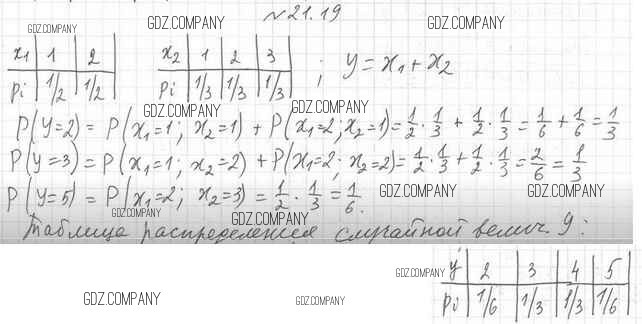 №21.19
GDZ.COMPANY GDZ.COMPANY GDZ.COMPANY
x₁ | 1 | 2
pi | 1/2 | 1/2
x₂ | 1 | 2 | 3
pi | 1/3 | 1/3 | 1/3
; y = x₁ + x₂
GDZ.COMPANY GDZ.COMPANY
P(y=2) = P(x₁=1; x₂=1) + P(x₁=2; x₂=1) = 1/2 · 1/3 + 1/2 · 1/3 = 1/6 + 1/6 = 1/3
P(y=3) = P(x₁=1; x₂=2) + P(x₁=2; x₂=2) = 1/2 · 1/3 + 1/2 · 1/3 = 2/6 = 1/3
P(y=5) = P(x₁=2; x₂=3) = 1/2 · 1/3 = 1/6.
GDZ.COMPANY GDZ.COMPANY
GDZ.COMPANY GDZ.COMPANY
Таблица распределения случайной велич. y:
y | 2 | 3 | 4 | 5
pi | 1/6 | 1/3 | 1/3 | 1/6
GDZ.COMPANY
GDZ.COMPANY GDZ.COMPANY